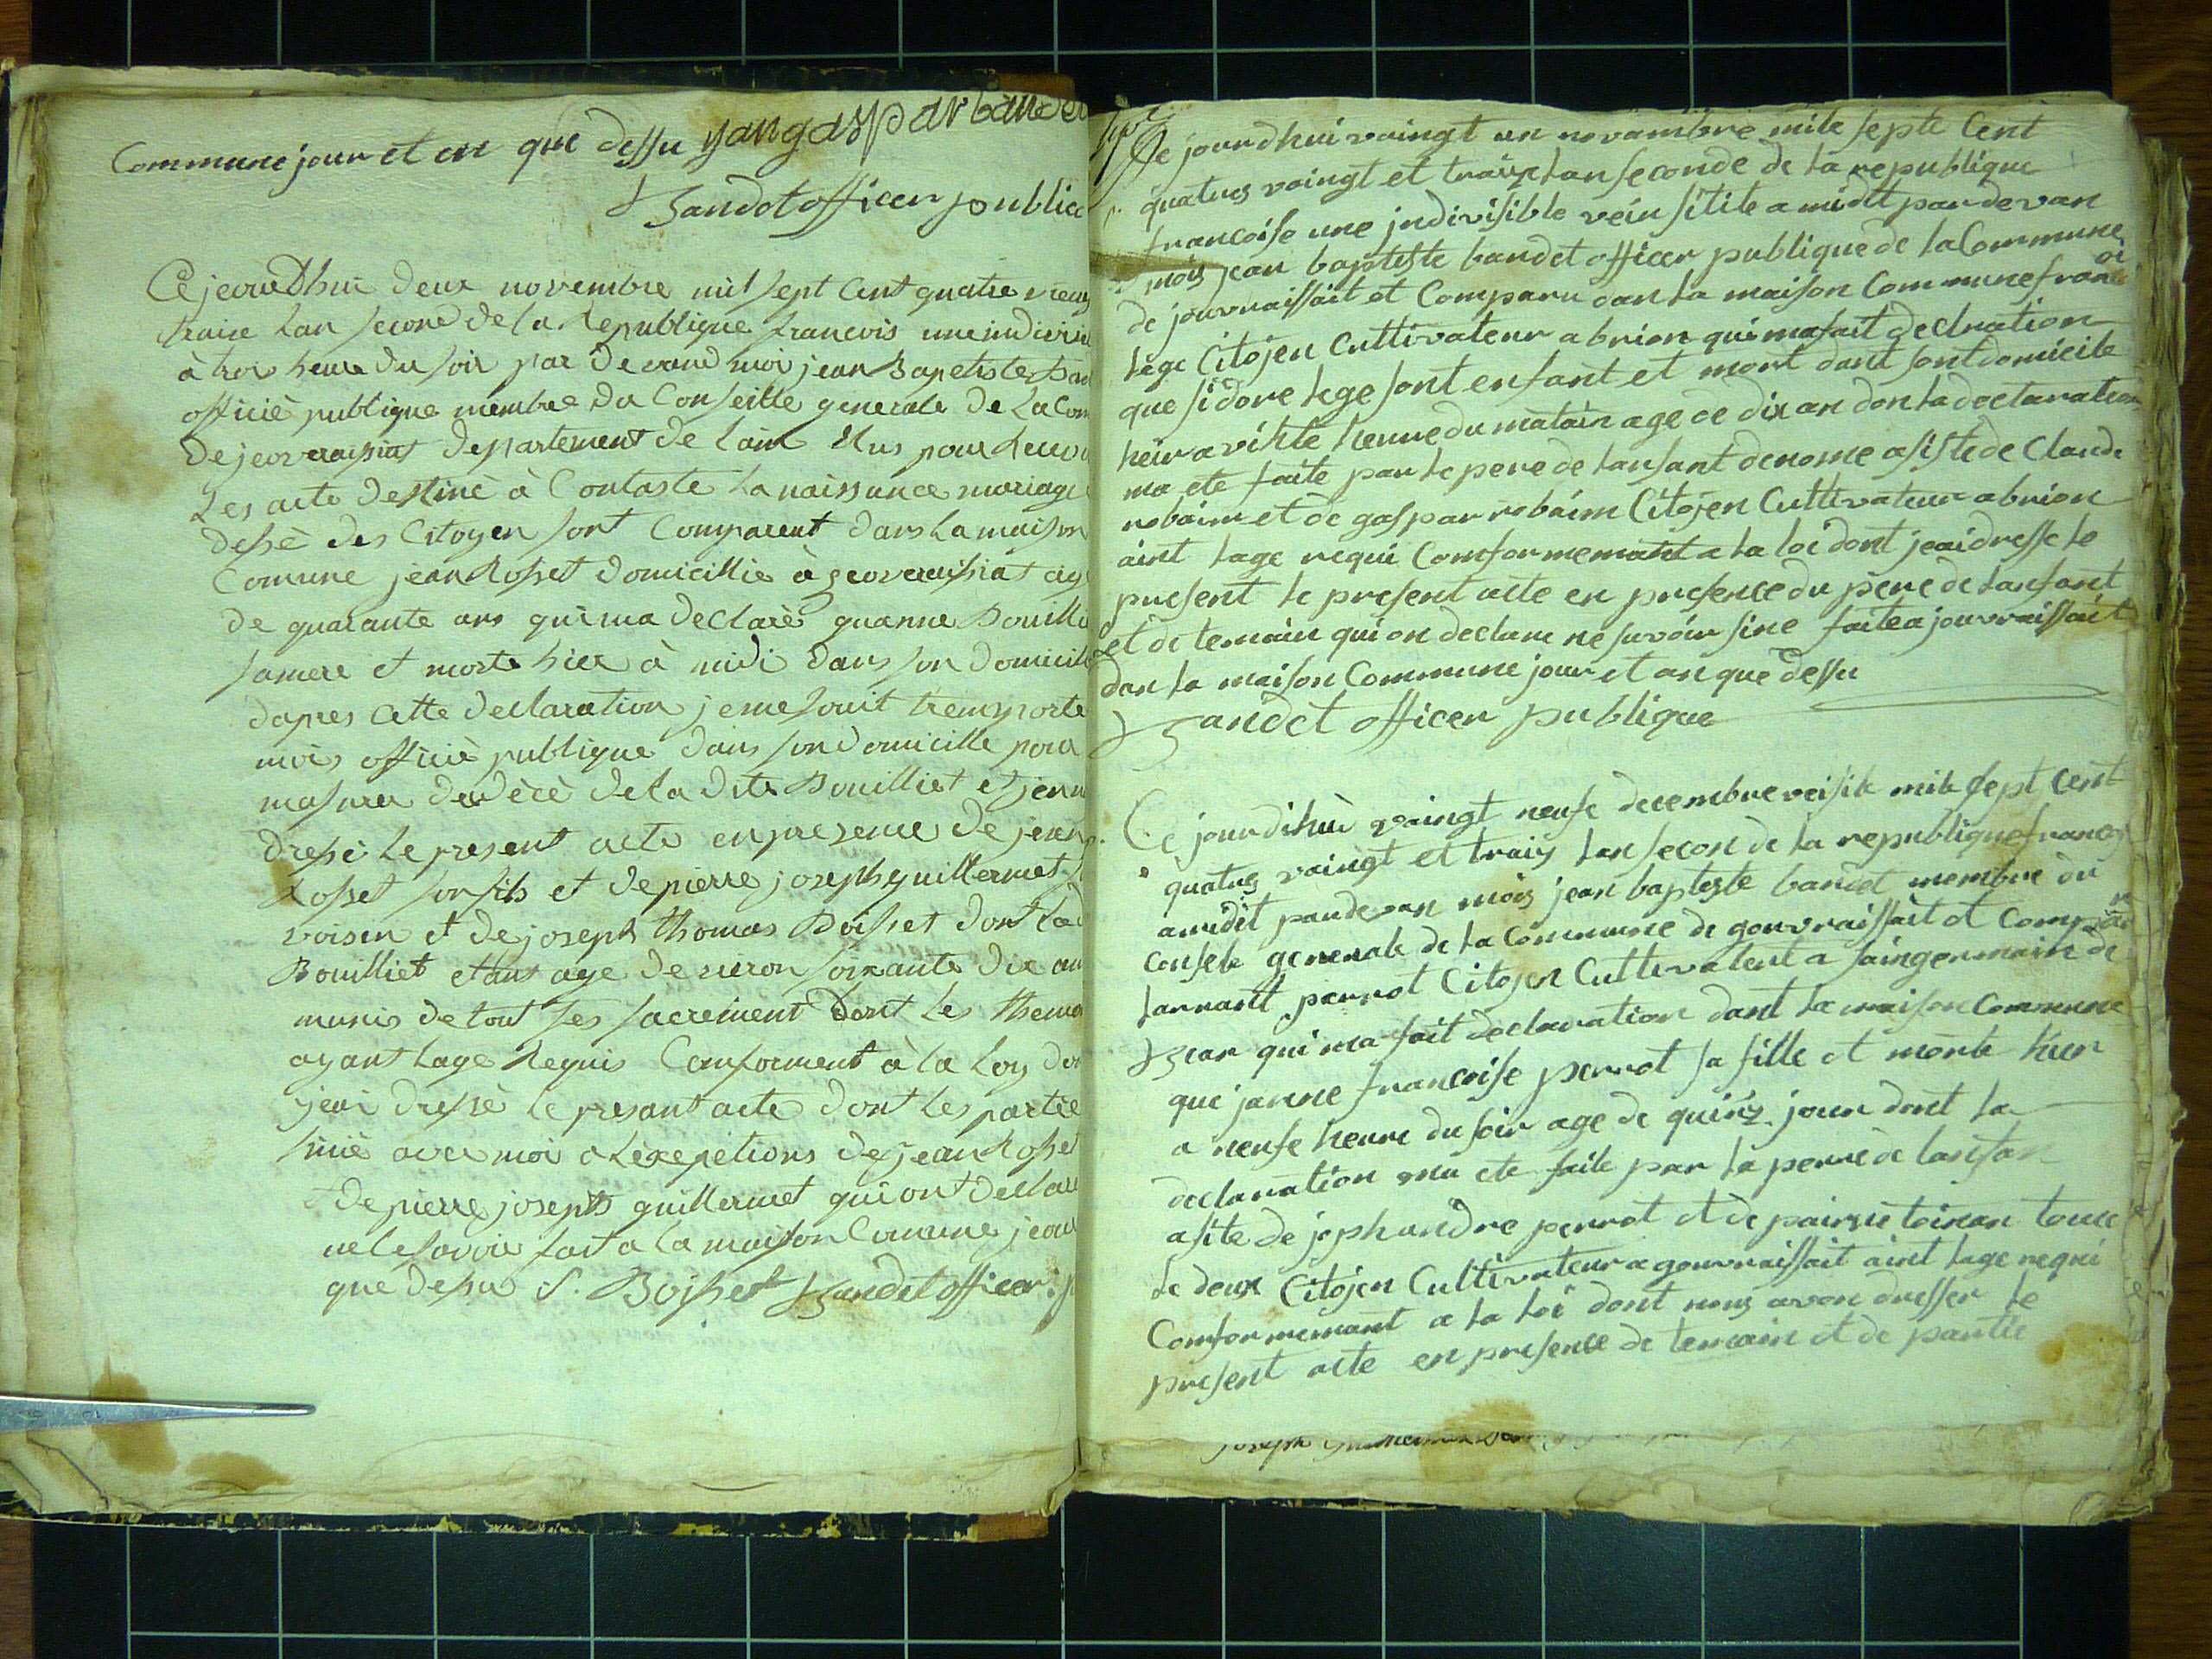 Commune jour et an que dessu yangaspar bandet
Bandet officer public
Cejourdhui deux novembre mil sept cent quatre vieng
traise lan second de la Republique francois une indivisi
à troi heure du soir par devand moi jean Bapetiste Ban
officiè publique membre du Conseille generale de La Com
dejeovraisiat departement de lain Elus pour Recev
Les acte destinè à Contaste La naissance mariage
dessè des Citoyen sont Comparent dans La maison
Comune jean Rosset domicillie à geovraisiat age
de quarante ans quima declarè quanne Bouillie
samere et morte hier à midi dans son domicile
dapres Cette declaration jeme souit tremsporte
mois officiè publique dans son domicille pour
masurer dudècè dela dite Bouilliet et jenn
dressè Le present acte enpresence de jean
Rosset son fils et de pierre joseph guillermet
voisin et de joseph thomas Boisset dont la d
Bouilliet etant age de nieron soixante dix an
munis de tout ses sacrement Dont Les themo
ayant Lage Requis Conforment à la Loy don
jeai dressè Le presant acte dont Les partie
sinie avec moi a Lexepetions de jean Rosset
et de pierre joseph guillermet qui ont declare
nele savoir fait a La maison Comune jour
que dessu S. Boisset Bandet officer p
Ce jourdhui vaingt un novambre mile septe Cent
quatres vaingt et traize lan seconde de la republique
francoise une jndivisible vein stile a midit pardevan
mois jean baptiste bandet officer publique de la Commune
de jouvraissait et Comparu dan la maison Commune francoi
lege Citojen Cultivateur a brion qui ma fait declration
que sidore lege sont enfant et mort dant sont domicile
heir a vihte heure du matain age de dix an don la declaration
ma ete faite par le pere de lansant denome asiste de Claude
robaim et de gaspar robaim Citojen Cultivateur a brion
aint lage requi Comformemant a la loi dont jeai dresse le
present le present aite en presence du père de lanfant
et de temain qui on declare ne savoir sine faite a jouvraissait
dan la maison Commune jour et an que dessu
Bandet officer publique
Ce jourdihui vaingt neufe decembre veisile mile sept cent
quatres vaingt et traiz lan secon de la republique francois
amidit pardevan mois jean baptiste bandet membre du
consele generale de la Commune de gouvraissait et Comparu
larrant perrot Citojen Cultivateur a saingermain de
Bear qui ma fait declaration dant la maison Commune
que janne francoise perrot sa fille et morte hier
a neufe heure du soir age de quinz jour dont la
declaration ma ete faite par la perre de lanfan
asite de jophandre perrot et de pairre toinan touce
le deux Citojen Cultivateur a gouvraissait aint lage requi
Comformemant a la loi dont nous avon dresser le
present acte en presence de temain et de partie
joseph